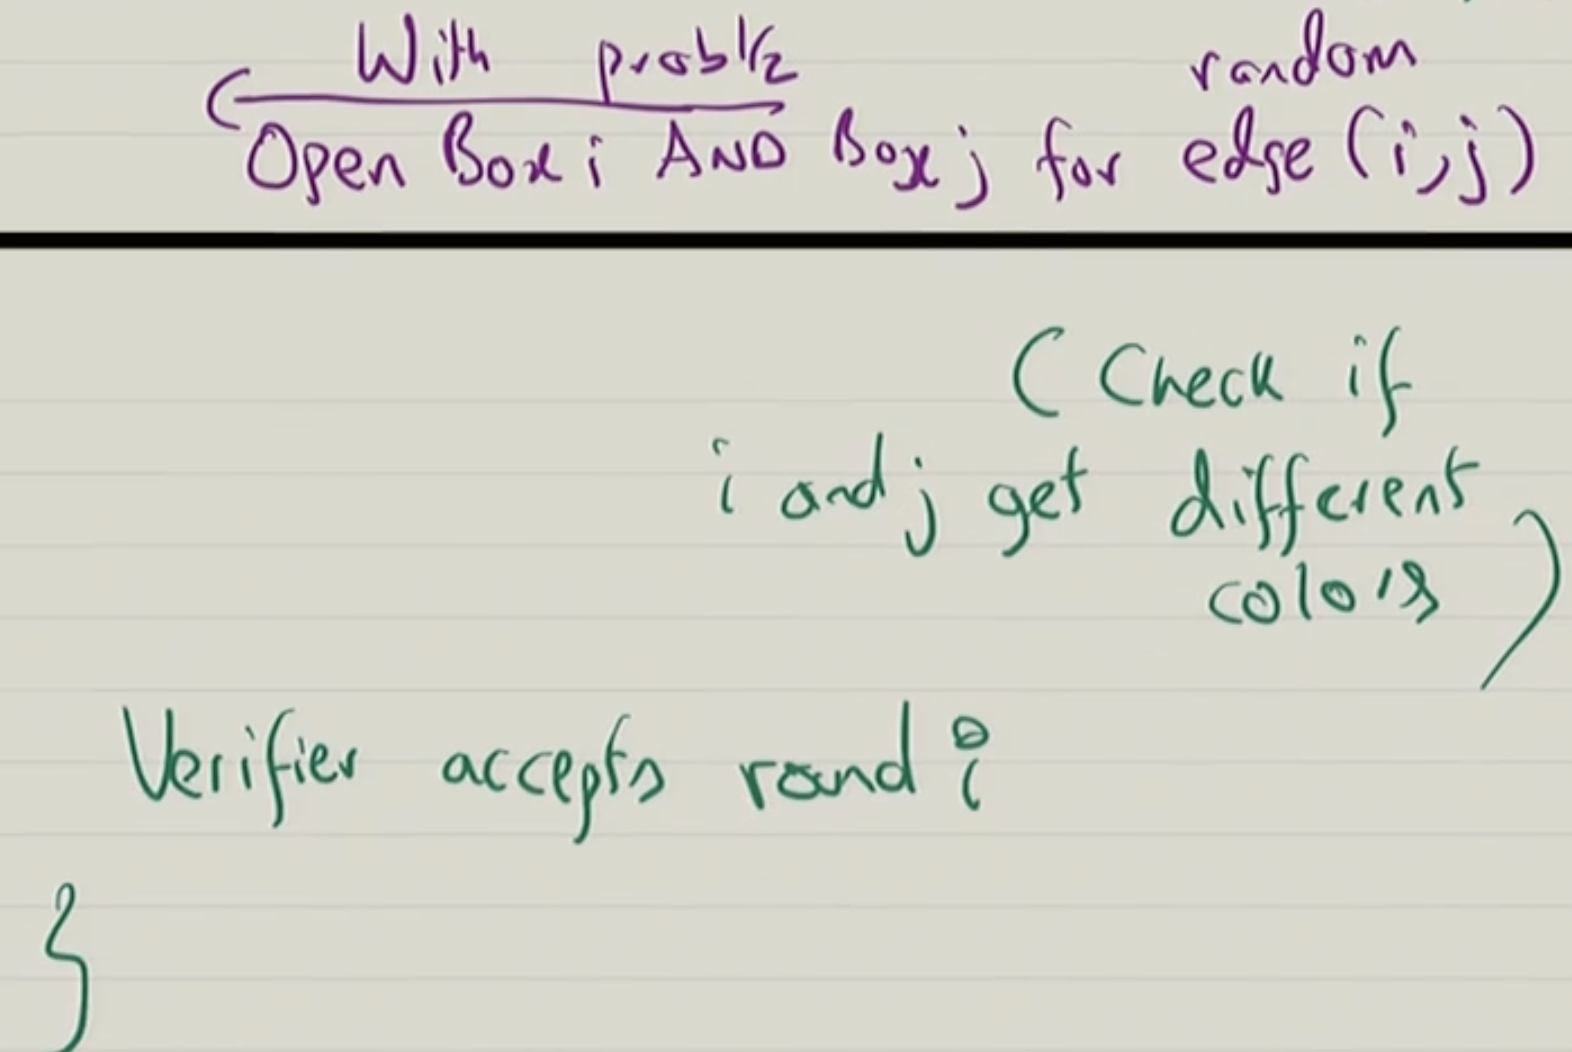 With prob 1/2
random
Open Box i AND Box j for edge (i,j)
(Check if
i and j get different
colors)
Verifier accepts round i
}